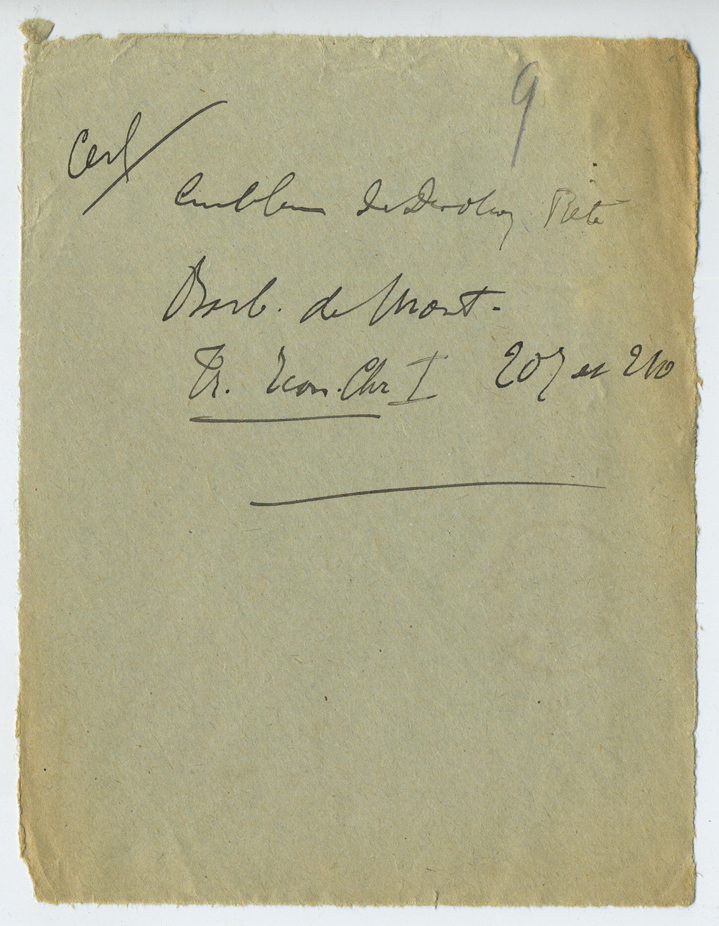 9
Cerf
Emblème de Dévotion Piété
Barb. de Mont.
Tr. Icon. Chr I 207 et 210